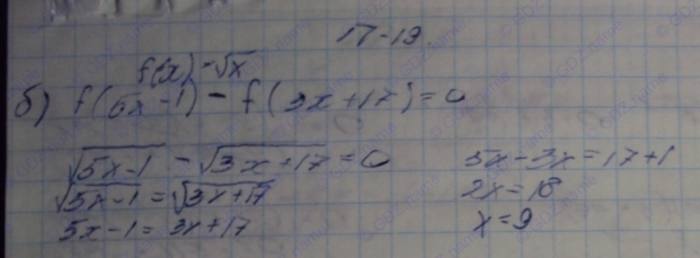 17-13.
f(x) = √x
б) f(5x-1) - f(3x+17) = 0
√5x-1 - √3x+17 = 0
√5x-1 = √3x+17
5x-1 = 3x+17
5x-3x=17+1
2x=18
x=9